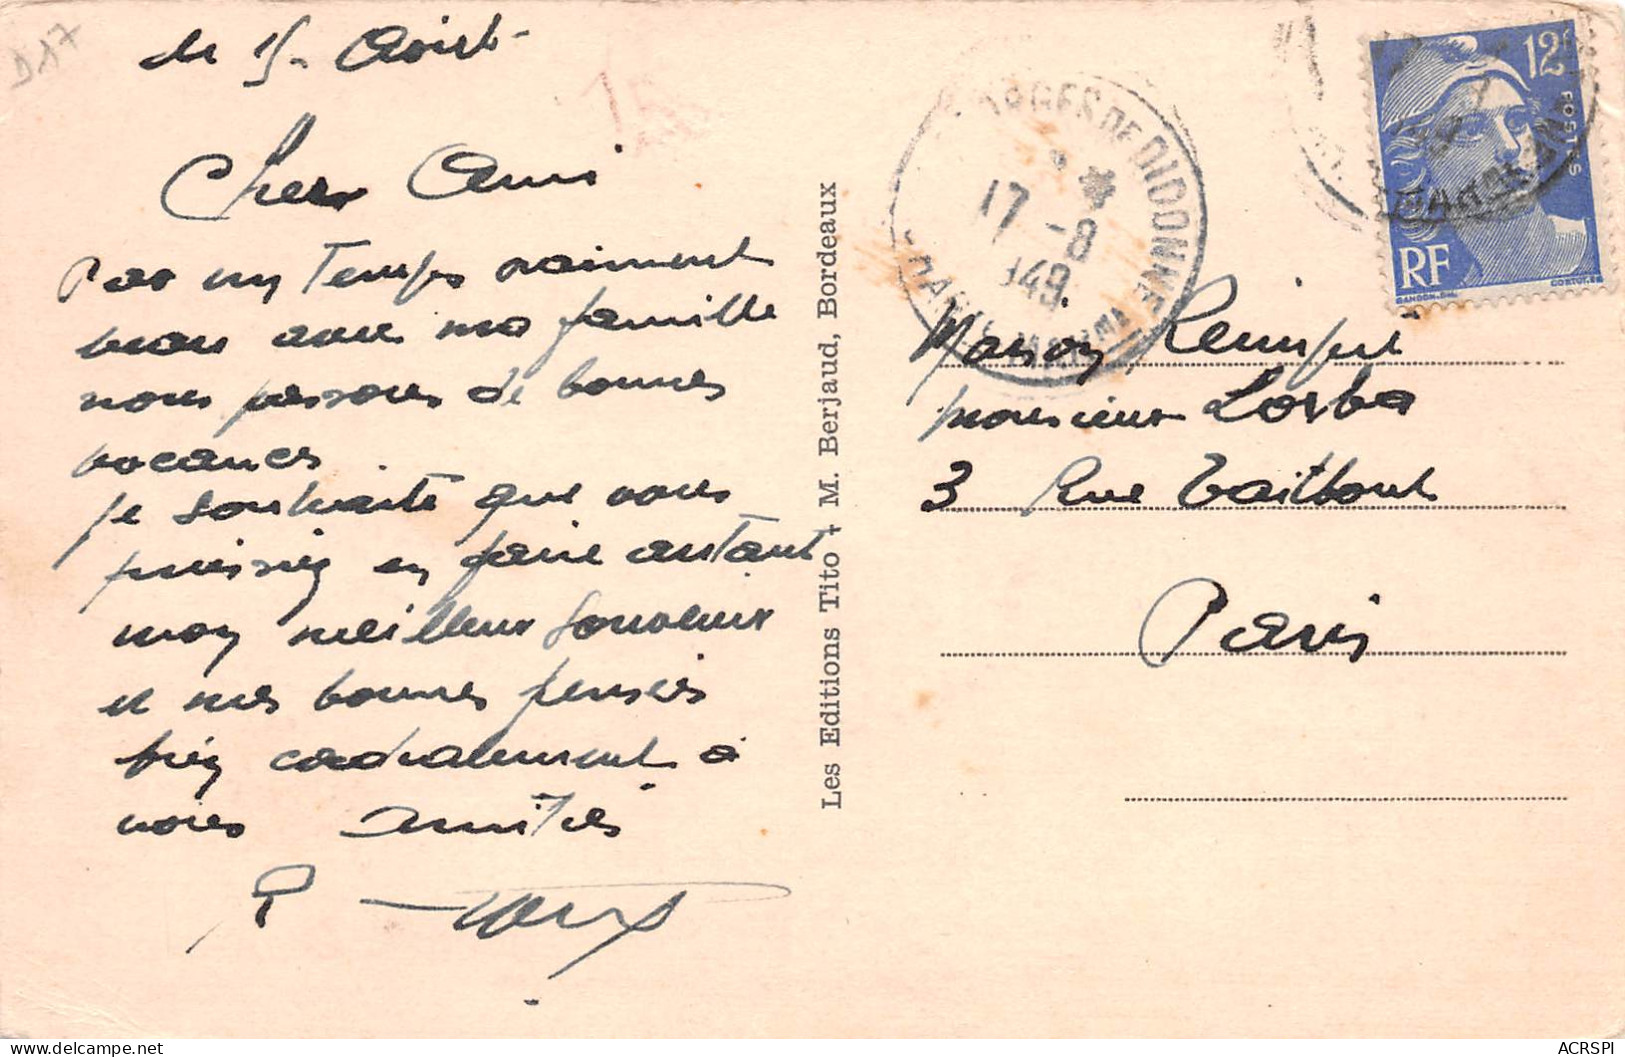 D17
le 15 Aout
Cher Ami
Par un Temps vraiment
beau avec ma famille
nous passons de bonnes
vacances
je souhaite que vous
puissiez en faire autant
mon meilleur souvenir
et mes bonnes pensées
bien cordialement à
vous amitiés
Les Editions Tito + M. Berjaud, Bordeaux
GES DE DIDONNE
17 -8
1949
12F
POSTES
RF
GANDON.DEL
CORTOT.SC
Maison
monsieur Lorba
3 Rue Taitbout
Paris
ACRSPI